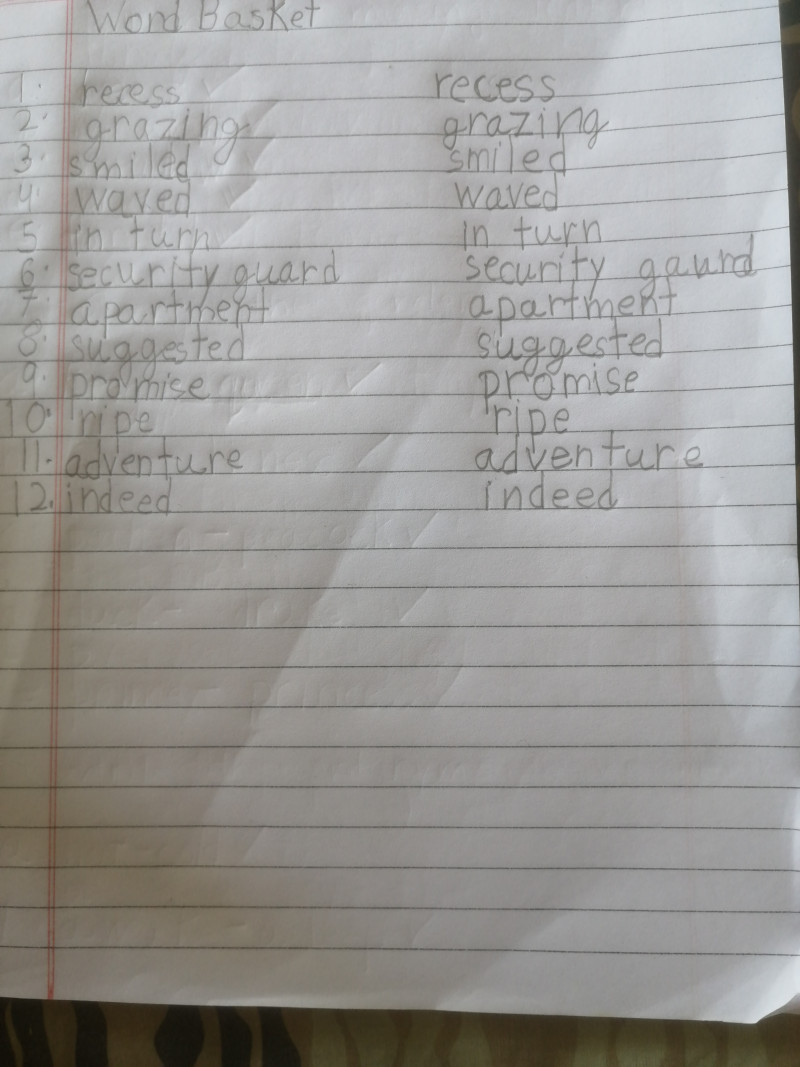 Word Basket
1. recess recess
2. grazing grazing
3. smiled smiled
4. waved waved
5 in turn in turn
6. security guard security gaurd
7. apartment apartment
8. suggested suggested
9. promise promise
10. ripe ripe
11. adventure adventure
12. indeed indeed